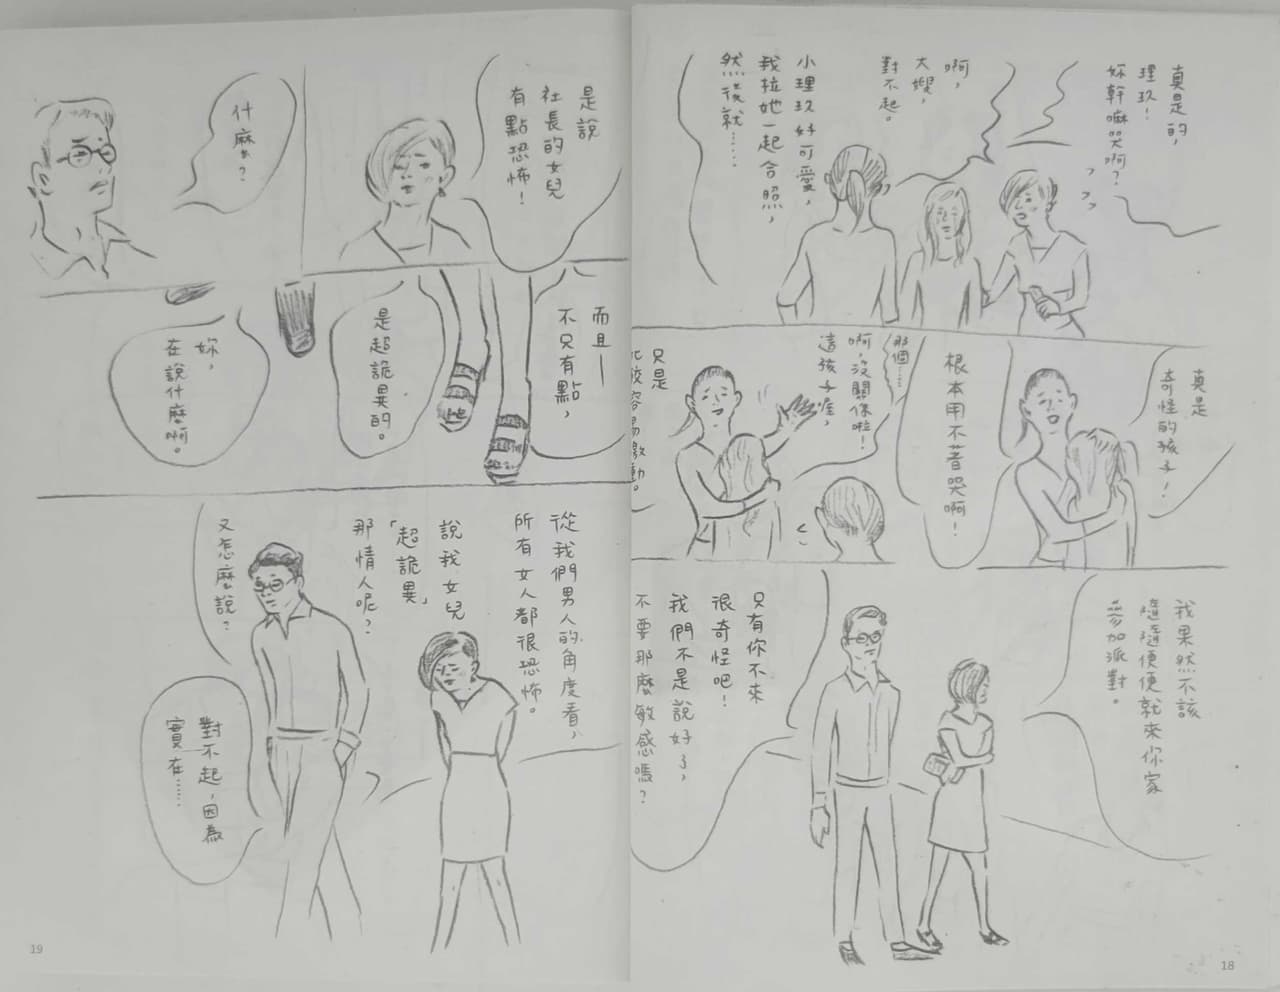 真是的，
理玖！
妳幹嘛哭啊？
啊，
大嫂，
對不起。
小理玖好可愛，
我拉她一起合照，
然後就……
真是
奇怪的孩子！
根本用不著哭啊！
那個……
啊，沒關係啦！
這孩子喔，
只是
比較容易激動。
我果然不該
隨隨便便就來你家
參加派對。
只有你不來
很奇怪吧！
我們不是說好了，
不要那麼敏感嗎？
18
是說
社長的女兒
有點恐怖！
什麼？
而且—
不只有點，
是超詭異的。
妳，
在說什麼啊。
從我們男人的角度看，
所有女人都很恐怖。
說我女兒
「超詭異」
那情人呢？
又怎麼說？
對不起，因為
實在……
19